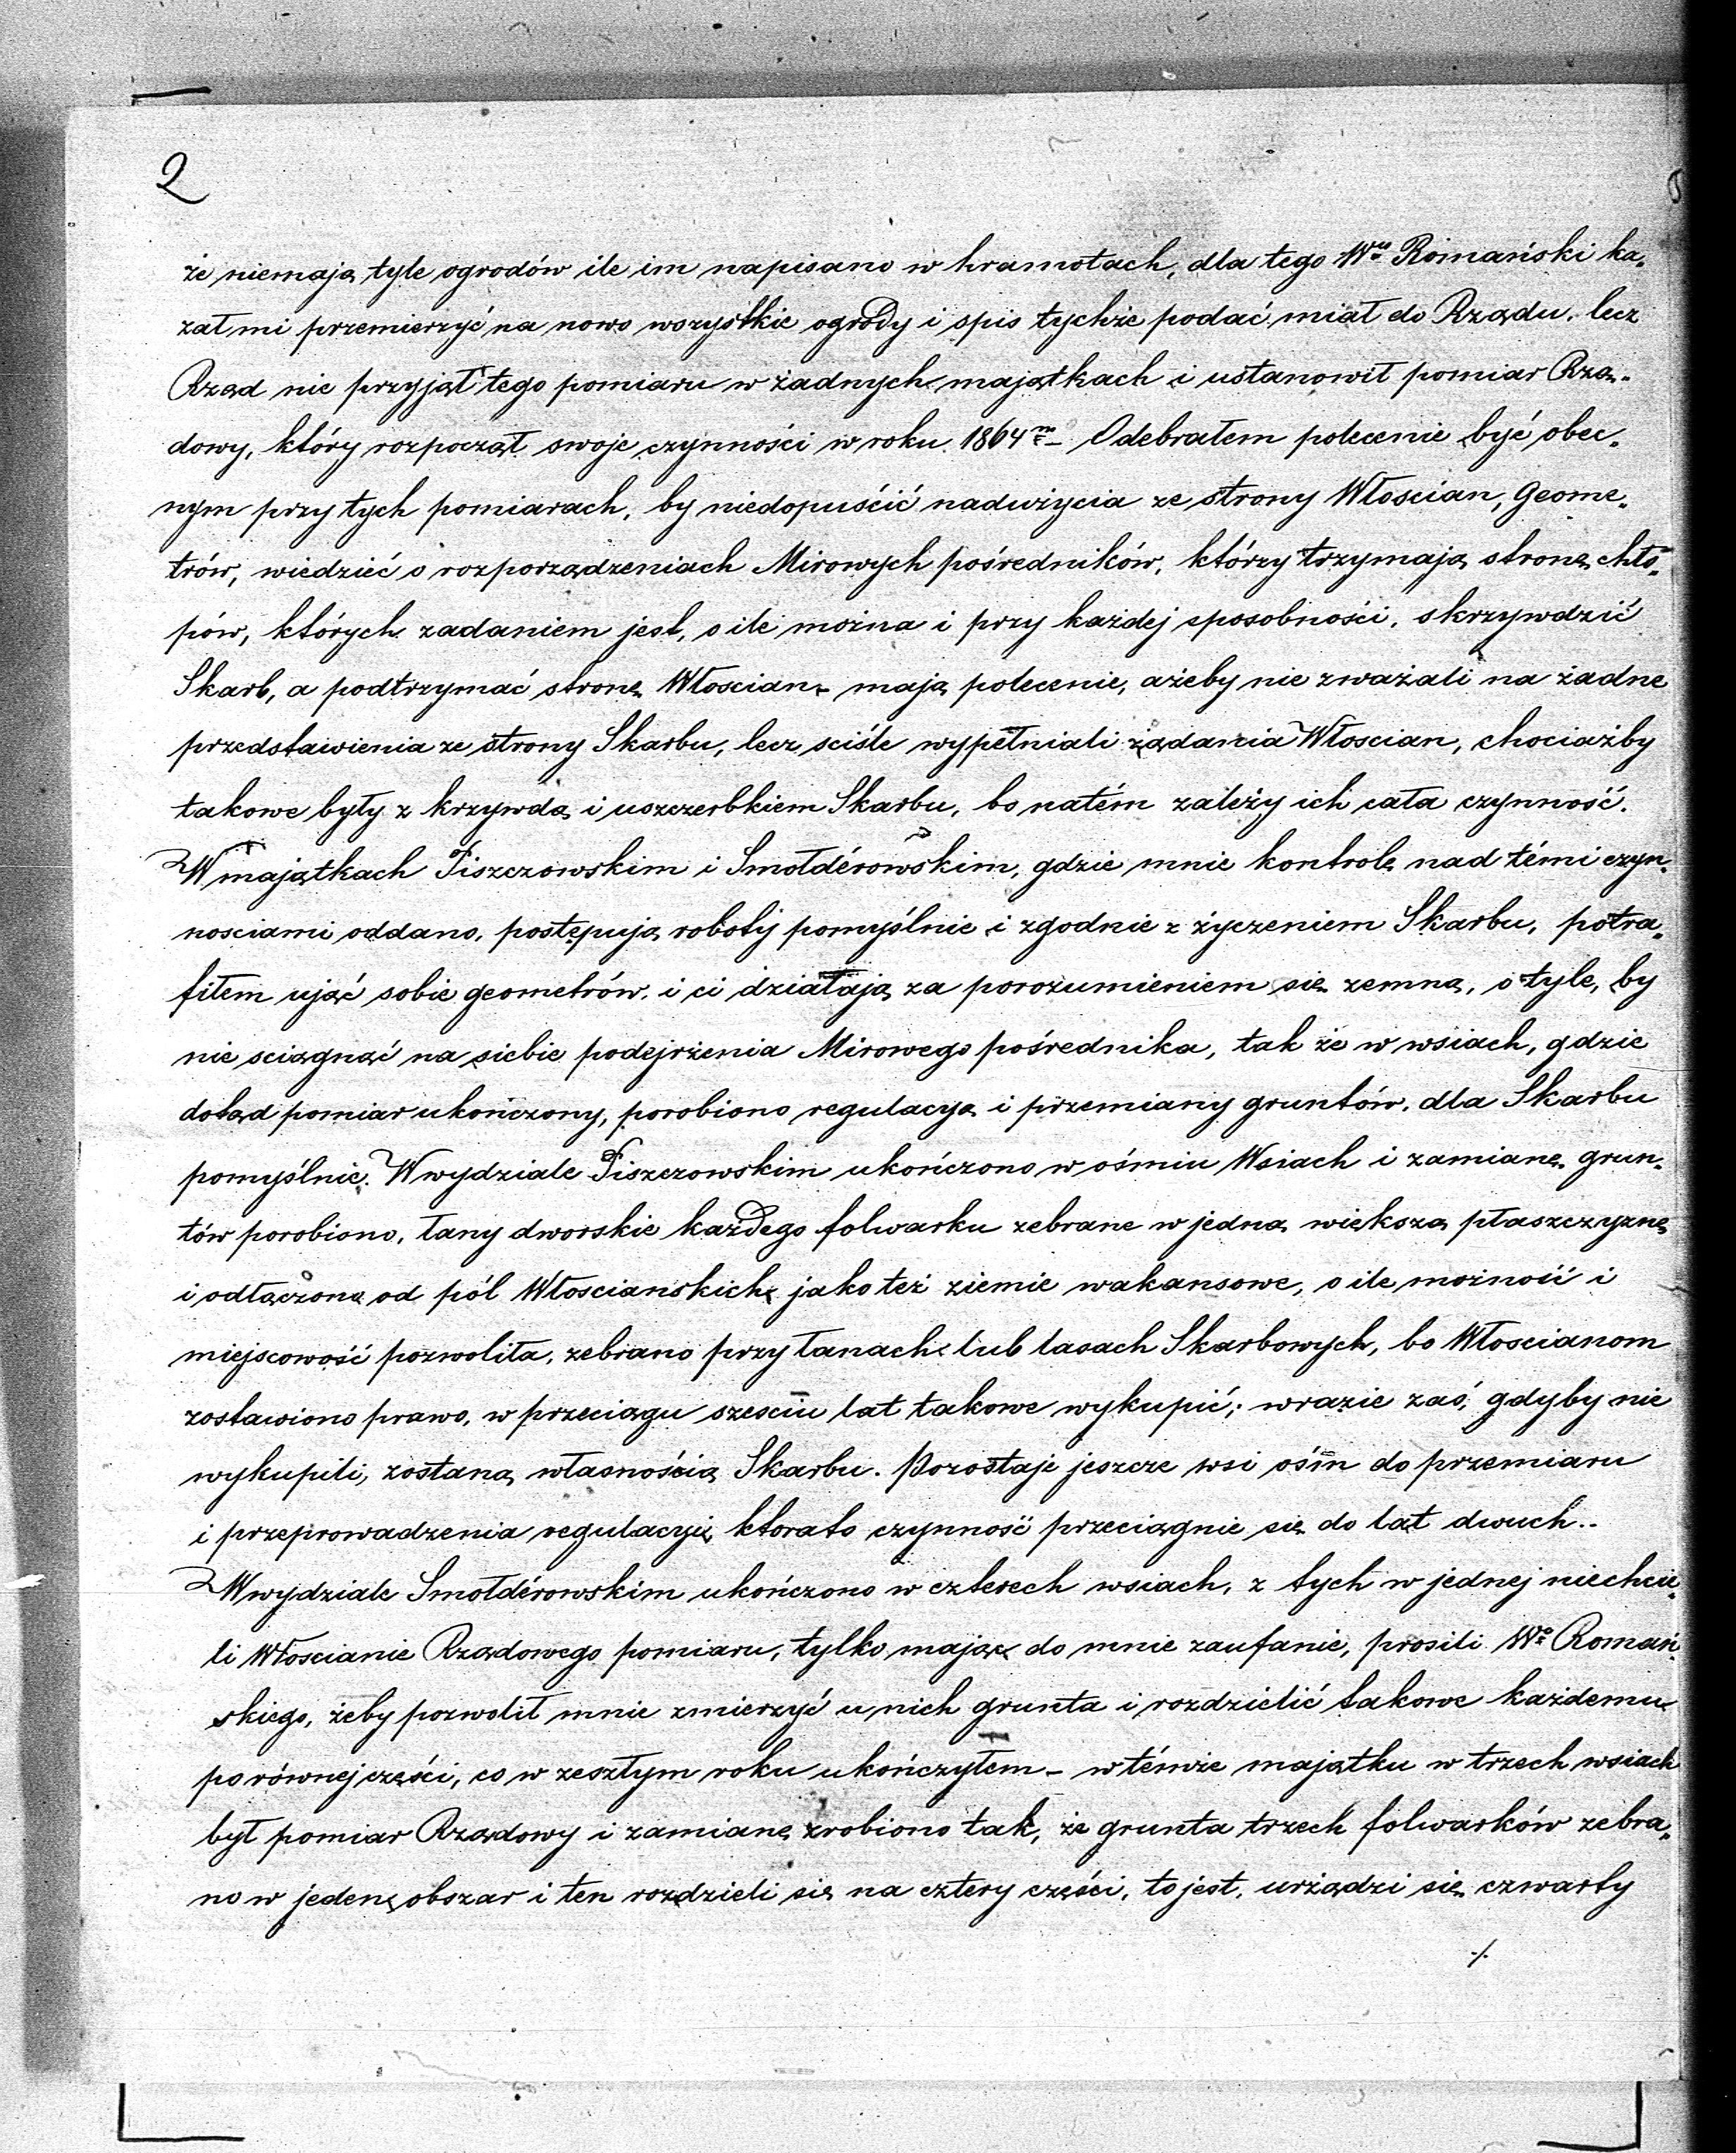 2
że niemają tyle ogrodów ile im napisano w hramotach, dla tego Wny Romański ka-
zał mi przemierzyć na nowo wszystkie ogrody i spis tychże podać miał do Rządu, lecz
Rząd nie przyjął tego pomiaru w żadnych majątkach i ustanowił pomiar Rzą-
dowy, który rozpoczął swoje czynności w roku 1864m – Odebrałem polecenie być obec-
nym przy tych pomiarach, by niedopuścić nadużycia ze strony Włoscian, Geome-
trów, wiedzieć o rozporządzeniach Mirowych pośredników, którzy trzymają stronę chło-
pów, których zadaniem jest, o ile można i przy każdej sposobności, skrzywdzić
Skarb, a podtrzymać stronę Włoscian – mają polecenie, ażeby nie zważali na żadne
przedstawienia ze strony Skarbu, lecz sciśle wypełniali żądania Włoscian, chociażby
takowe były z krzywdą i uszczerbkiem Skarbu, bo natém zależy ich cała czynność.
W majątkach Piszczowskim i Smołdérowskim, gdzie mnie kontrolę nad témi czyn-
nosciami oddano, postępują roboty pomyślnie i zgodnie z życzeniem Skarbu, potra-
fiłem ująć sobie geometrów, i ci działają za porozumieniem się zemną, o tyle, by
nie sciągnąć na siebie podejrżenia Mirowego pośrednika, tak że w wsiach, gdzie
dotąd pomiar ukończony, porobiono regulacyą i przemiany gruntów, dla Skarbu
pomyślnie. W wydziale Piszczowskim ukończono w ośmiu Wsiach i zamianę grun-
tów porobiono, łany dworskie każdego folwarku zebrane w jedną większą płaszczyznę
i odłączono od pól Włoscianskich jako też ziemie wakansowe, o ile możność i
miejscowość pozwoliła, zebrano przy łanach lub lasach Skarbowych, bo Włoscianom
zostawiono prawo, w przeciągu szesciu lat takowe wykupić; wrazie zaś, gdyby nie
wykupili, zostaną własnością Skarbu. Pozostaje jeszcze wsi ośm do przemiaru
i przeprowadzenia regulacyi, ktorato czynność przeciągnie się do lat dwuch..
W wydziale Smołdérowskim ukończono w czterech wsiach, z tych w jednej niechcie-
li Włoscianie Rządowego pomiaru, tylko mając do mnie zaufanie, prosili Wo Romań-
skiego, żeby pozwolił mnie zmierzyć u nich grunta i rozdzielić takowe każdemu
po równej części, co w zeszłym roku ukończyłem – w témże majątku w trzech wsiach
był pomiar Rządowy i zamianę zrobiono tak, że grunta trzech folwarków zebra-
no w jeden obszar i ten rozdzieli się na cztery części, to jest, urżądzi się czwarty
./.